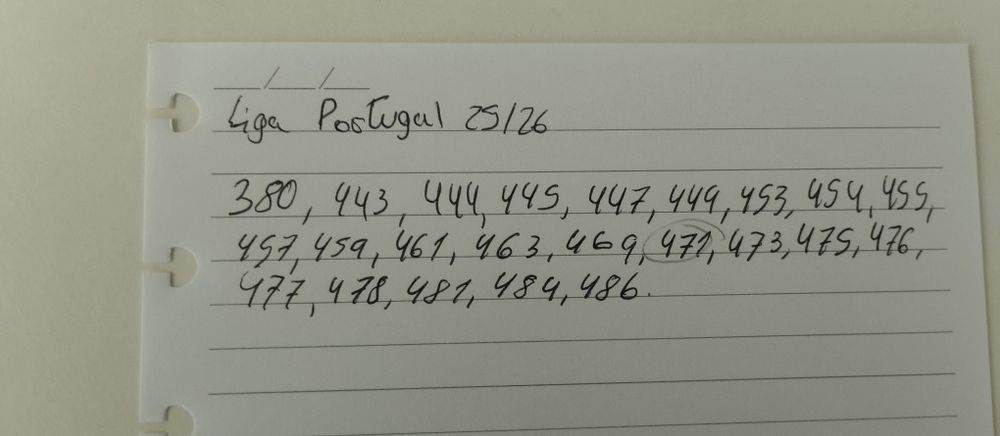 __/__/__
Liga Portugal 25/26
380, 443, 444, 445, 447, 449, 453, 454, 455,
457, 459, 461, 463, 469, 471, 473, 475, 476,
477, 478, 481, 484, 486.